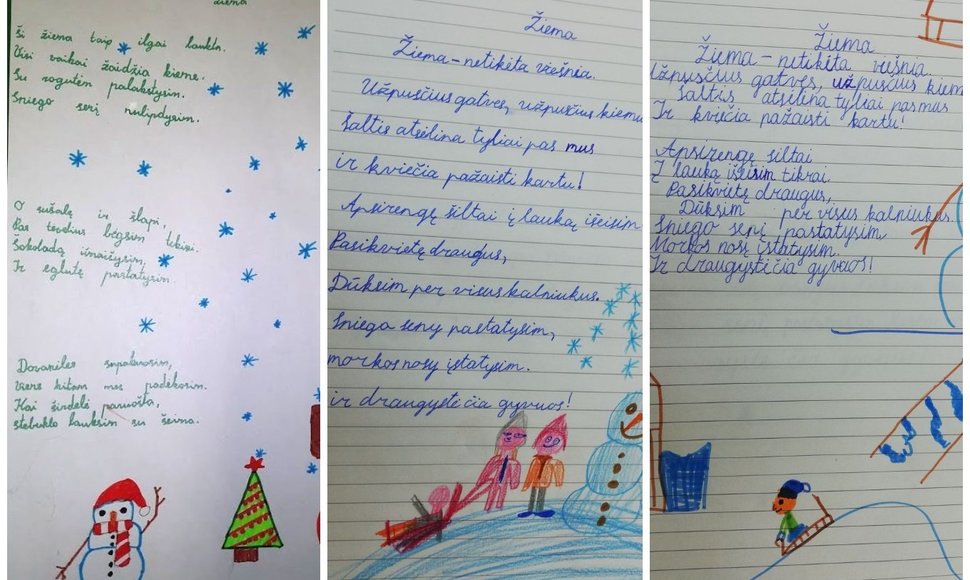 Žiema
Ši žiema taip ilgai laukta.
Visi vaikai žaidžia kieme.
Su rogutėm palakstysim.
Sniego senį nulipdysim.
O sušalę ir šlapi,
Pas tėvelius bėgsim tekini.
Šokoladą išnaikysim,
Ir eglutę pastatysim.
Dovanėles supakuosim,
viens kitam mes padėkosim.
Kai širdelė paruošta,
stebuklo lauksim su šeima.
Žiema
Žiema-netikėta viešnia.
Užpusčius gatves, užpusčius kiemu
Šaltis atsėlina tyliai pas mus
ir kviečia pažaisti kartu!
Apsirengę šiltai į lauką išeisim
Pasikvietę draugus,
Dūksim per visus kalniukus.
Sniego senį pastatysim,
morkos nosį įstatysim.
ir draugystė čia gyvuos!
Žiema
Žiema-netikėta viešnia.
Užpusčius gatves, užpusčius kiem
Šaltis atsėlina tyliai pas mus
Ir kviečia pažaisti kartu!
Apsirengę šiltai
Į lauką išeisim tikrai
Pasikvietę draugus,
Dūksim per visus kalniukus.
Sniego senį pastatysim
Morkos nosį įstatysim.
Ir draugystė čia gyvuos!